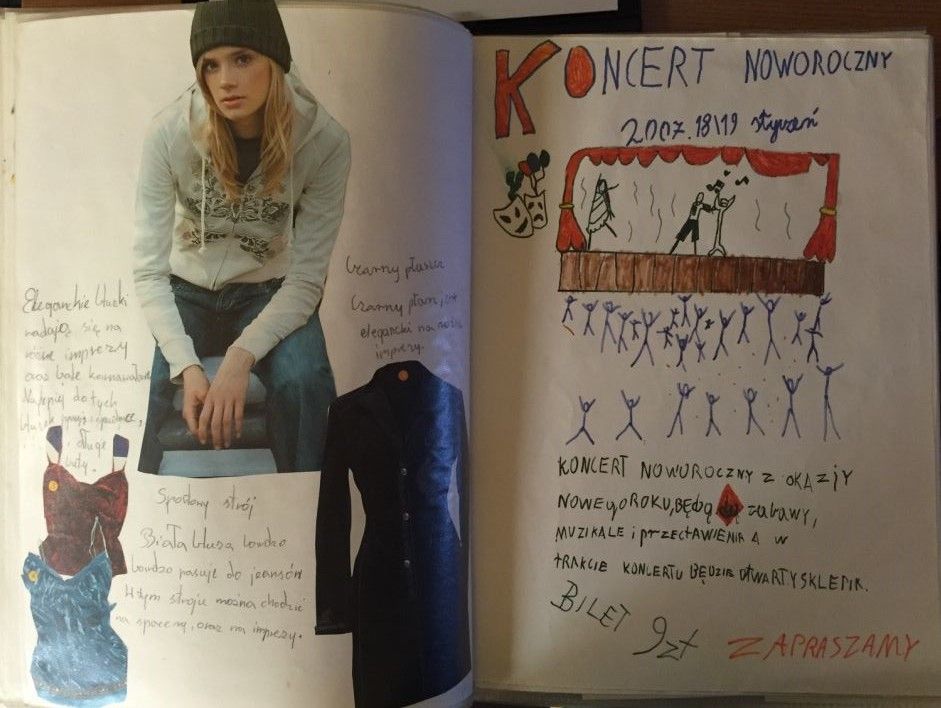 Eleganckie bluzki
nadają się na
różne imprezy
oraz bale karnawałowe
Najlepiej do tych
bluzek pasują spódnice,
długie
buty.
Czarny płaszcz
Czarny płaszcz, jest
elegancki na różne
imprezy.
Spodony strój
Biała bluza bardzo
bardzo pasuje do jeansów
W tym stroju można chodzić
na spacery, oraz na imprezy.
KONCERT NOWOROCZNY
2007.18\19 styczeń
KONCERT NOWOROCZNY Z OKAZjY
NOWEgO ROKU, BĘDĄ zabawy,
MUZIKALE i przectAWIENIA A W
tRAKCIE KONCERTU BĘDZIE OTWARTY SKLEPIK.
BILET 9zł ZAPRASZAMY